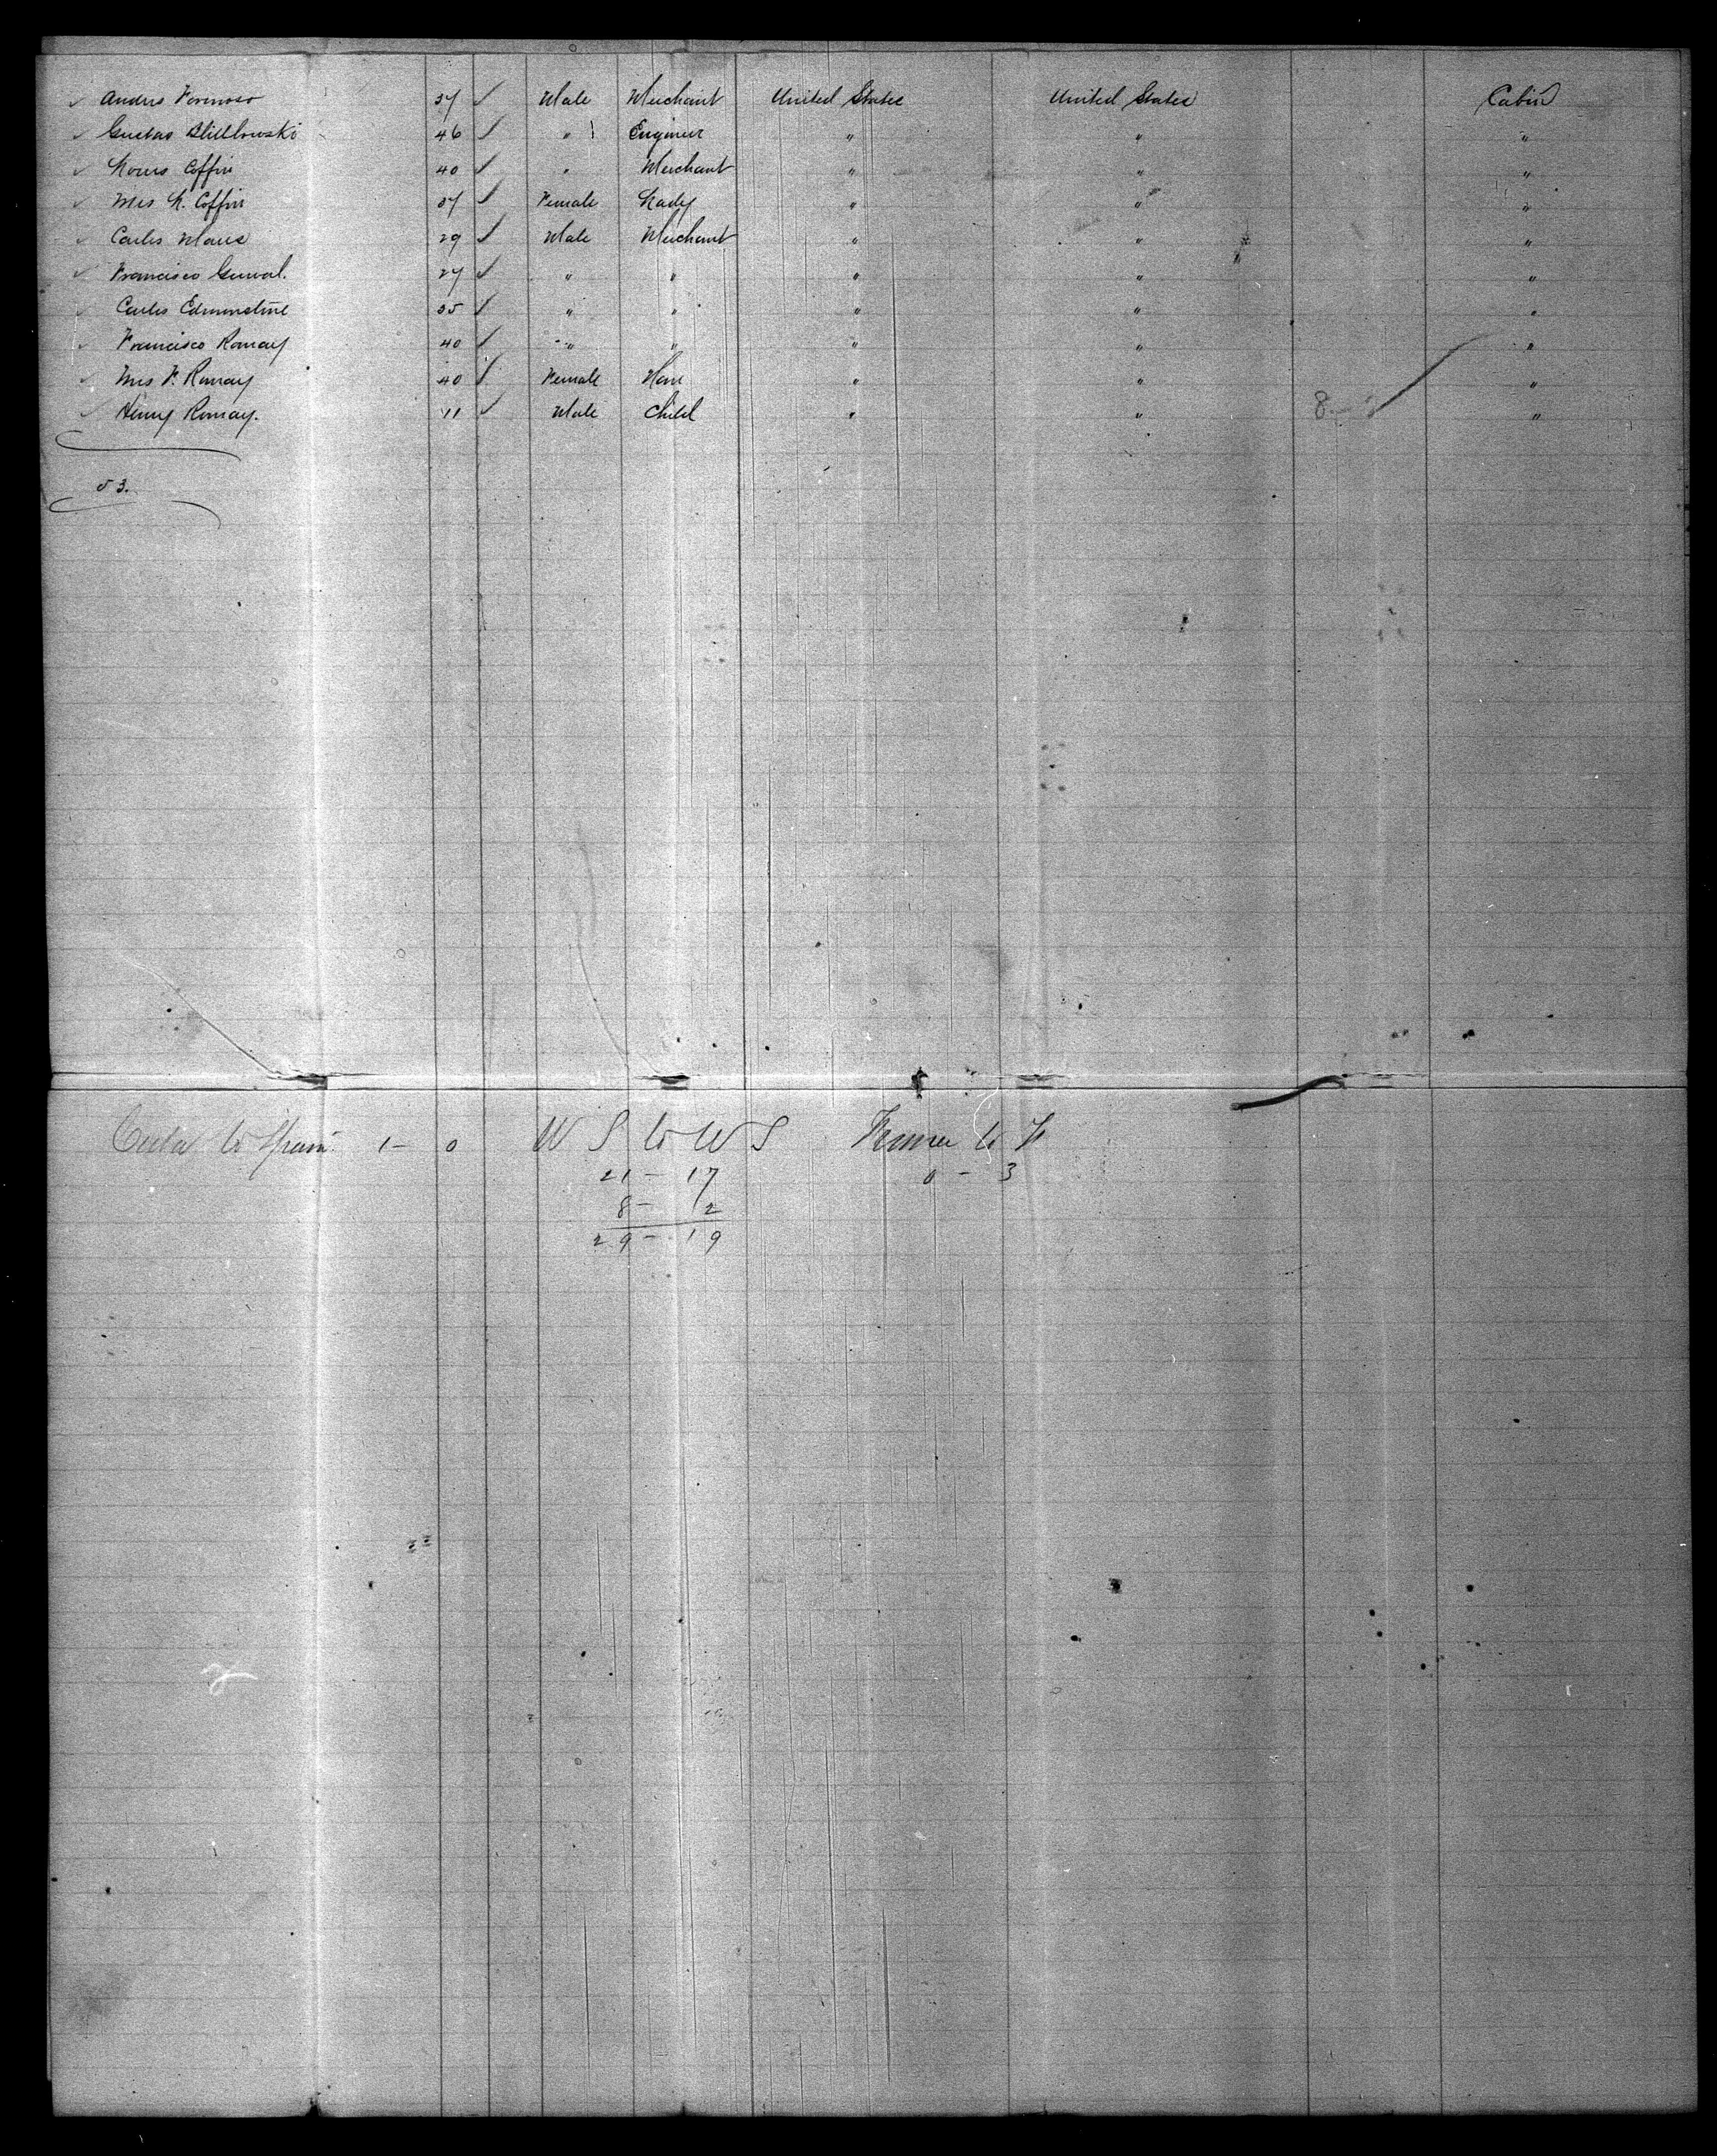 Andres Formoso 37 ✓ Male Merchant United States United States Cabin
Gustav 46 ✓ " Engineer " " "
Louis Coffin 40 ✓ " Merchant " " "
Mrs L. Coffin 37 ✓ Female Lady " " "
Carlos 29 ✓ Male Merchant " " "
Francisco 27 ✓ " " " " "
Carlos 35 ✓ " " " " "
Francisco Romay 40 ✓ " " " " "
Mrs F. Romay 40 ✓ Female None " " "
Henry Romay. 11 ✓ Male Child " " 8 "
53.
Cuba to Spain. 1 – 0 U S to U S France to F
21 – 17 0 – 3
8 – 2
29 – 19